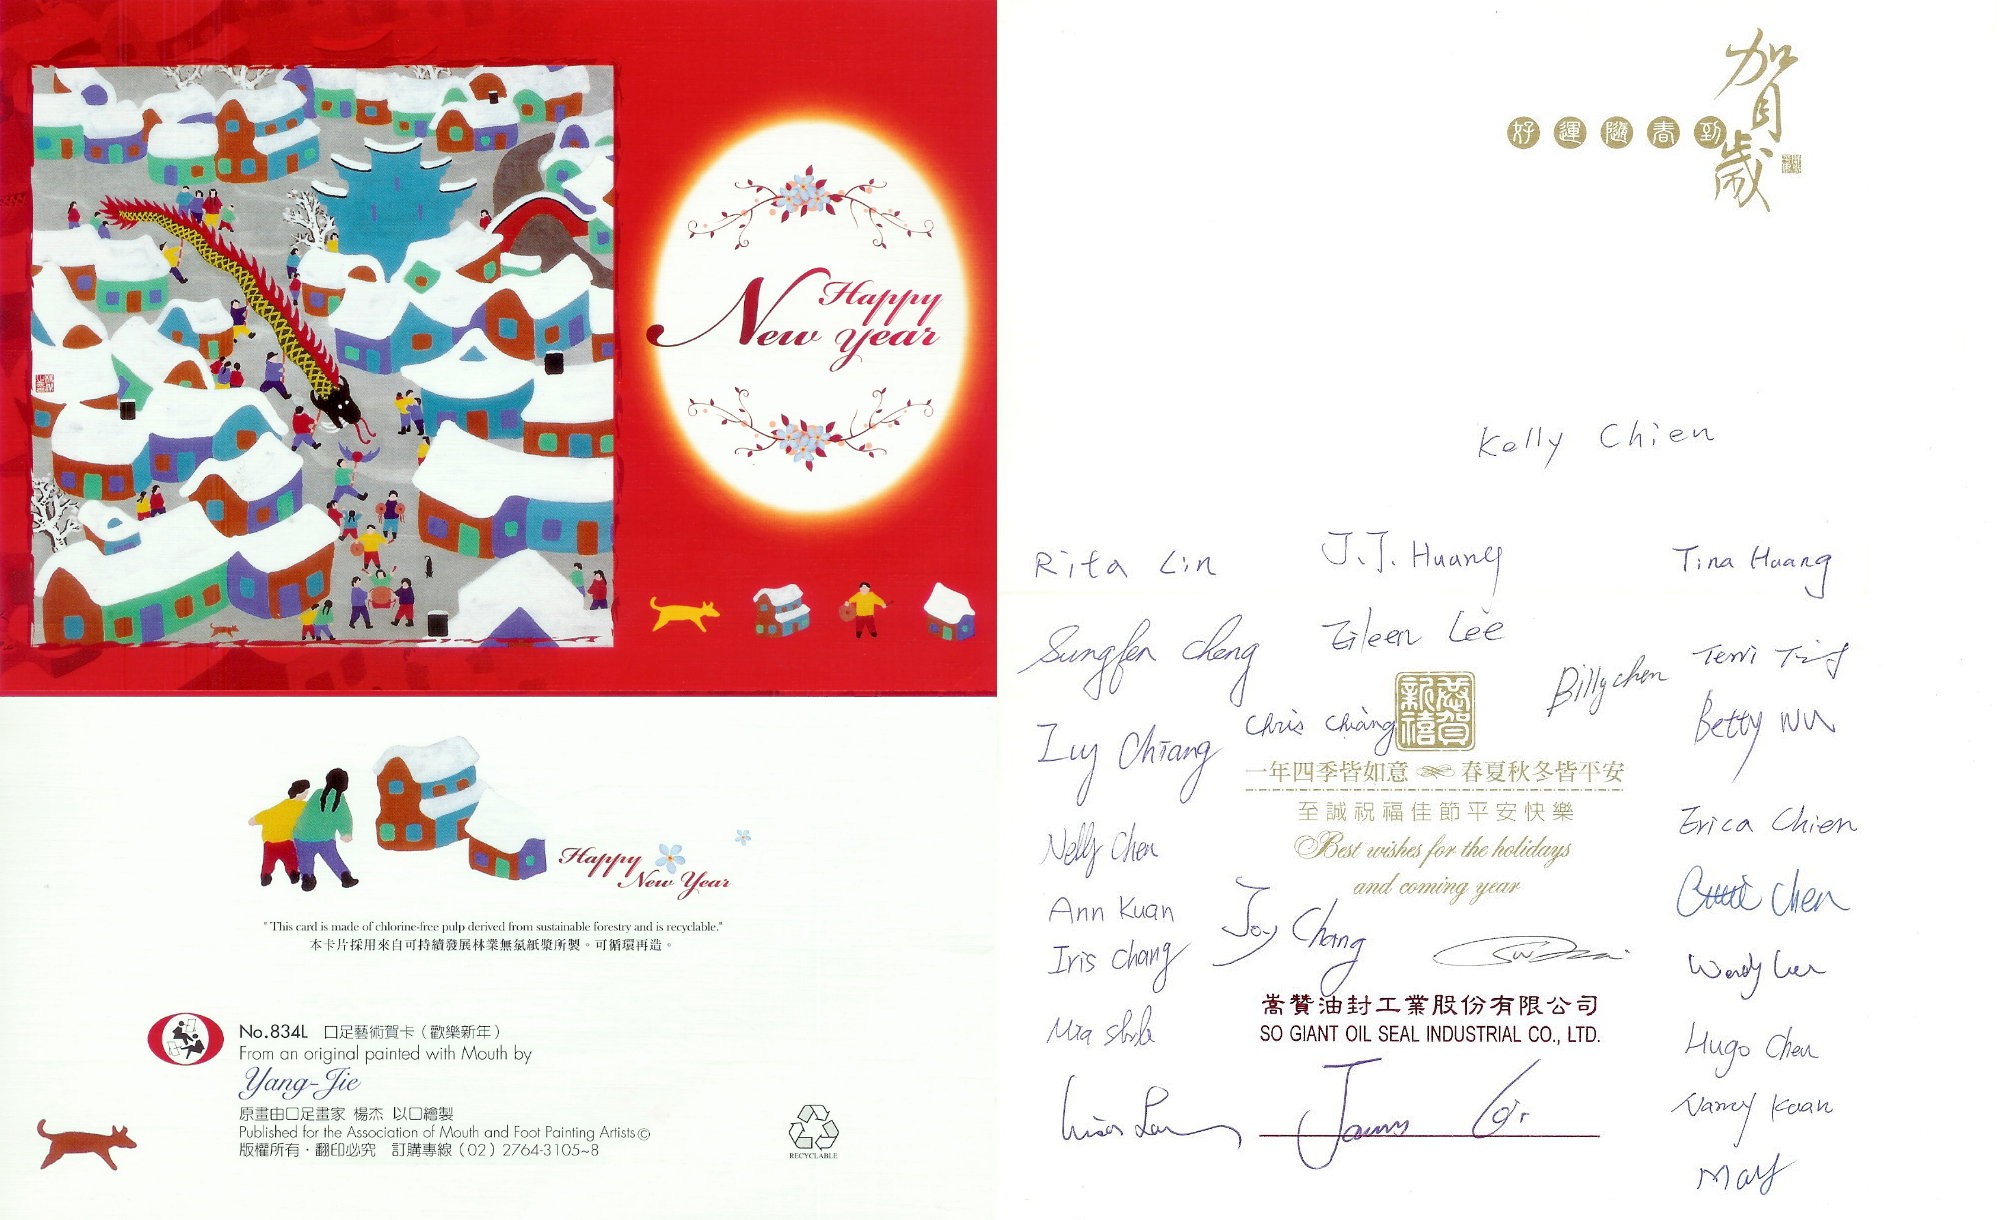 Happy
New year
Happy
New Year
" This card is made of chlorine-free pulp derived from sustainable forestry and is recyclable."
本卡片採用來自可持續發展林業無氯紙漿所製。可循環再造。
No.834L 口足藝術賀卡（歡樂新年）
From an original painted with Mouth by
Yang-Jie
原畫由口足畫家 楊杰 以口繪製
Published for the Association of Mouth and Foot Painting Artists©
版權所有・翻印必究 訂購專線（02）2764-3105~8
RECYCLABLE
賀歲
好運隨春到
Kelly Chien
Rita Lin
J.J. Huang
Tina Huang
Sungfen Cheng
Eileen Lee
Billy chen
Terri Ting
Chris Chiang
Betty Wu
Luy Chiang
恭賀新禧
一年四季皆如意 春夏秋冬皆平安
至誠祝福佳節平安快樂
Best wishes for the holidays
and coming year
Nelly Chen
Erica Chien
Ann Kuan
Joy Chang
Chen
Iris Chang
Wendy
Mia
嵩贊油封工業股份有限公司
SO GIANT OIL SEAL INDUSTRIAL CO., LTD.
Hugo Chen
Nancy Kuan
James
May